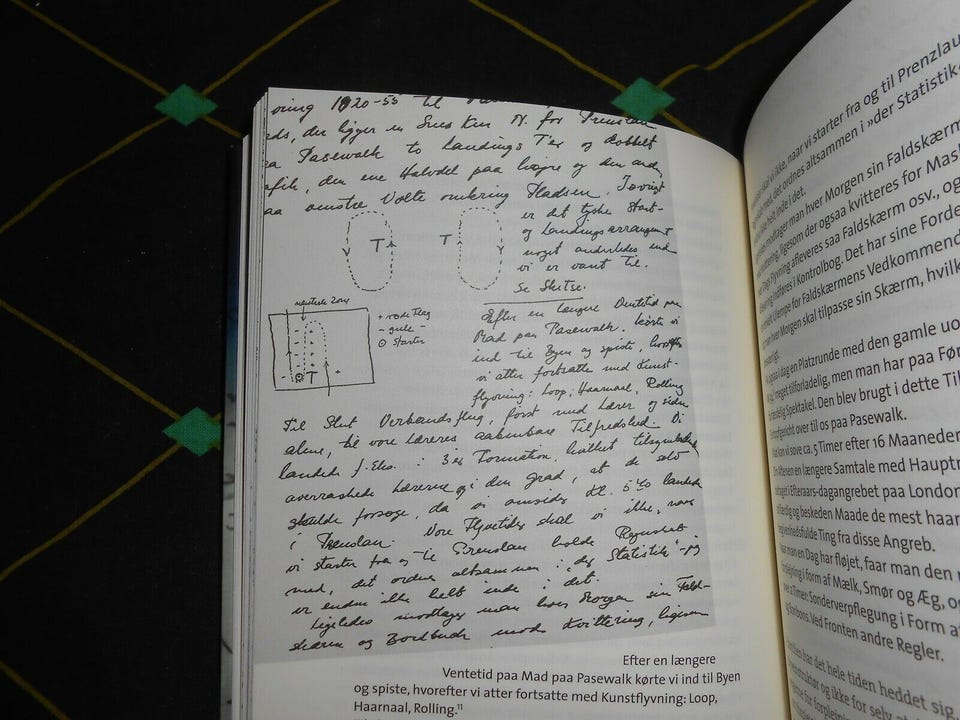 1920-55 til
der ligger en Snes Km N. for Prenzlau
Pasewalk to Landings T'er og dobbelt
den ene Halvdel paa højre og den
venstre Volte omkring Pladsen. Iøvrigt
er det tyske Start-
og Landingsarrangement
noget anderledes end
vi er vant til.
Se Skitse.
T
T
neutrale Zone
+ røde Flag
- gule -
⊙ Starter
T
Efter en længere Ventetid paa
Mad paa Pasewalk kørte vi
ind til Byen og spiste, hvorefter
vi atter fortsatte med Kunst-
flyvning: Loop, Haarnaal, Rolling
Til Slut Verbandsflug, først med Lærer og siden
alene, til vore Læreres aabenbare Tilfredshed. Vi
landede f. Eks. i 3er Formation, hvilket tilsyneladende
overraskede Lærerne i den Grad, at de selv
skulde forsøge, da vi omsider Kl. 5 40 landede
i Prenzlau. Vore Flyvetider skal vi ikke, naar
vi starter fra og til Prenzlau holde Regnskab
med, det ordnes altsammen i „der Statistik"- jeg
er endnu ikke helt inde i det.
Ligeledes modtager man hver Morgen sin Fald-
skærm og Bordbuch mod Kvittering, ligesom
Efter en længere
Ventetid paa Mad paa Pasewalk kørte vi ind til Byen
og spiste, hvorefter vi atter fortsatte med Kunstflyvning: Loop,
Haarnaal, Rolling.¹¹
skal vi ikke, naar vi starter fra og til Prenzlau
med, det ordnes altsammen i »der Statistik«
ikke helt inde i det.
modtager man hver Morgen sin Faldskærm
ligesom der ogsaa kvitteres for
Flyvning afleveres saa Faldskærm osv., og
indføres i Kontrolbog. Det har sine Forde
Ulempe for Faldskærmens Vedkommend
Morgen skal tilpasse sin Skærm, hvilk
i dag en Platzrunde med den gamle
tilforladelig, men man har paa
Spektakel. Den blev brugt i dette
over til os paa Pasewalk.
kan vi sove ca. 5 Timer efter 16 Maaneder
Aftenen en længere Samtale med Hauptm
i Efteraars-dagangrebet paa London
og beskeden Maade de mest haar
Ting fra disse Angreb.
man en Dag har fløjet, faar man den
i form af Mælk, Smør og Æg, o
Timer. Sonderverpflegung i Form af
Bonbons. Ved Fronten andre Regler.
har det hele tiden heddet sig
og ikke for selv